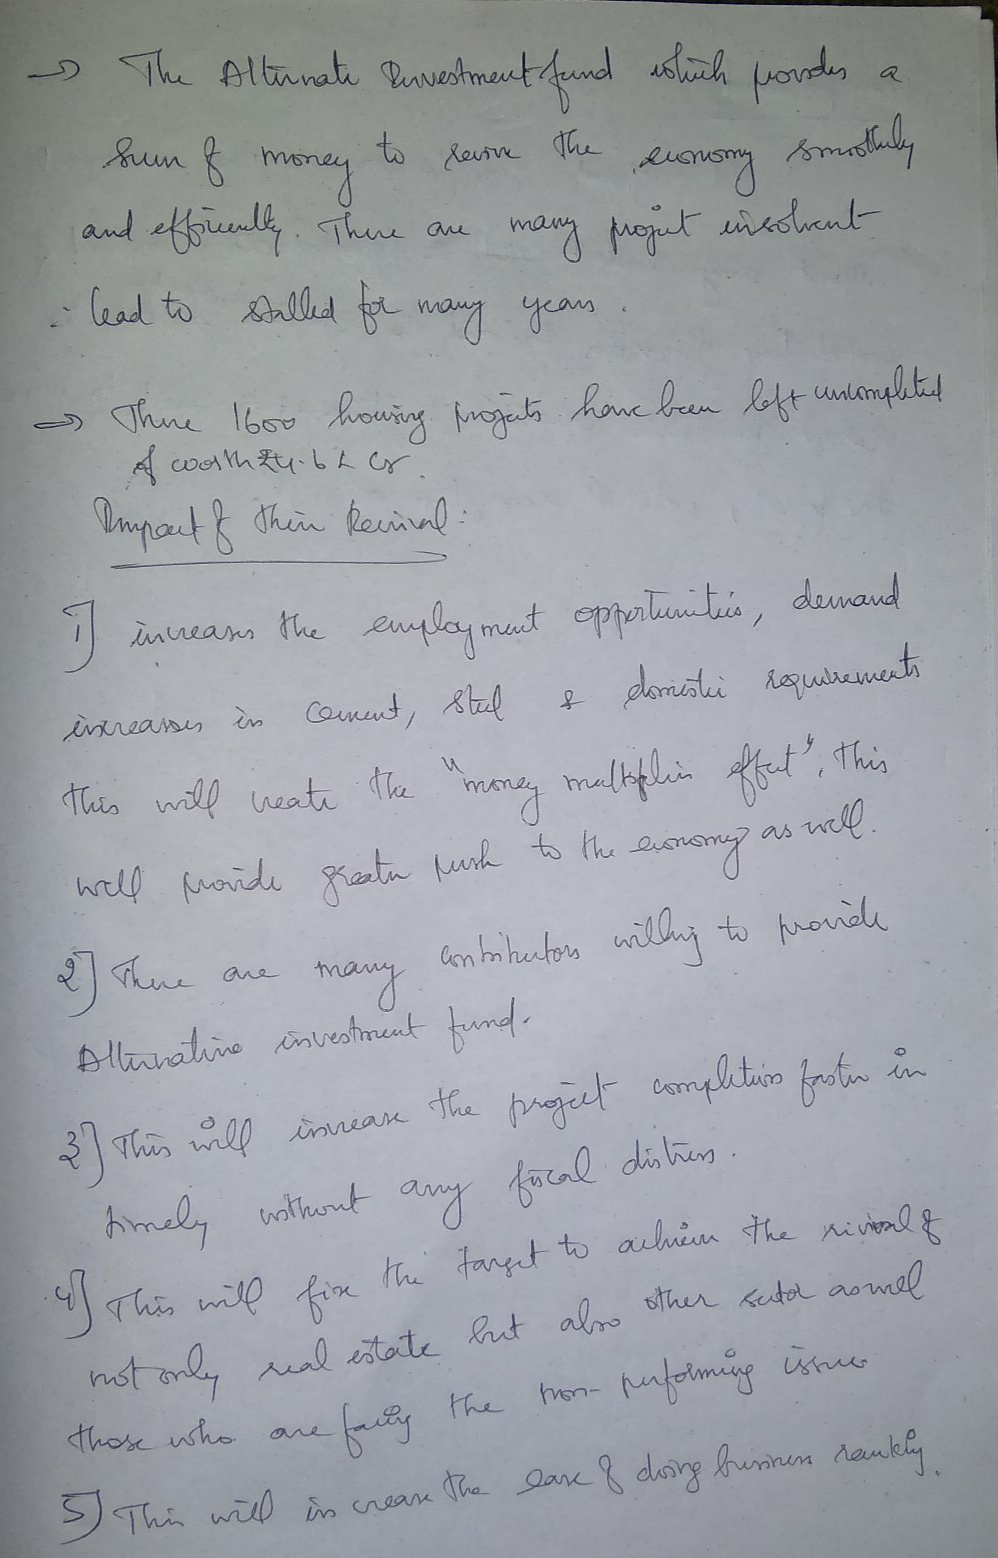 → The Alternate Investment fund which provides a
Sum of money to revive the economy smoothly
and efficiently. There are many project insolvent
∴ lead to stalled for many years.
⇒ There 1600 housing projects have been left uncompleted
of worth ₹4.6 L Cr.
Impact of their Revival:
1] increases the employment opportunities, demand
increases in Cement, Steel & domestic requirements
this will create the "money multiplier effect", this
will provide greater push to the economy as well.
2] There are many Contributors willing to provide
Alternative investment fund.
3] This will increase the project completion faster in
timely without any fiscal distress.
4] This will fix the target to achieve the rivival of
not only real estate but also other sector as well
those who are facing the non-performing issues
5] This will increase the ease of doing business ranking.